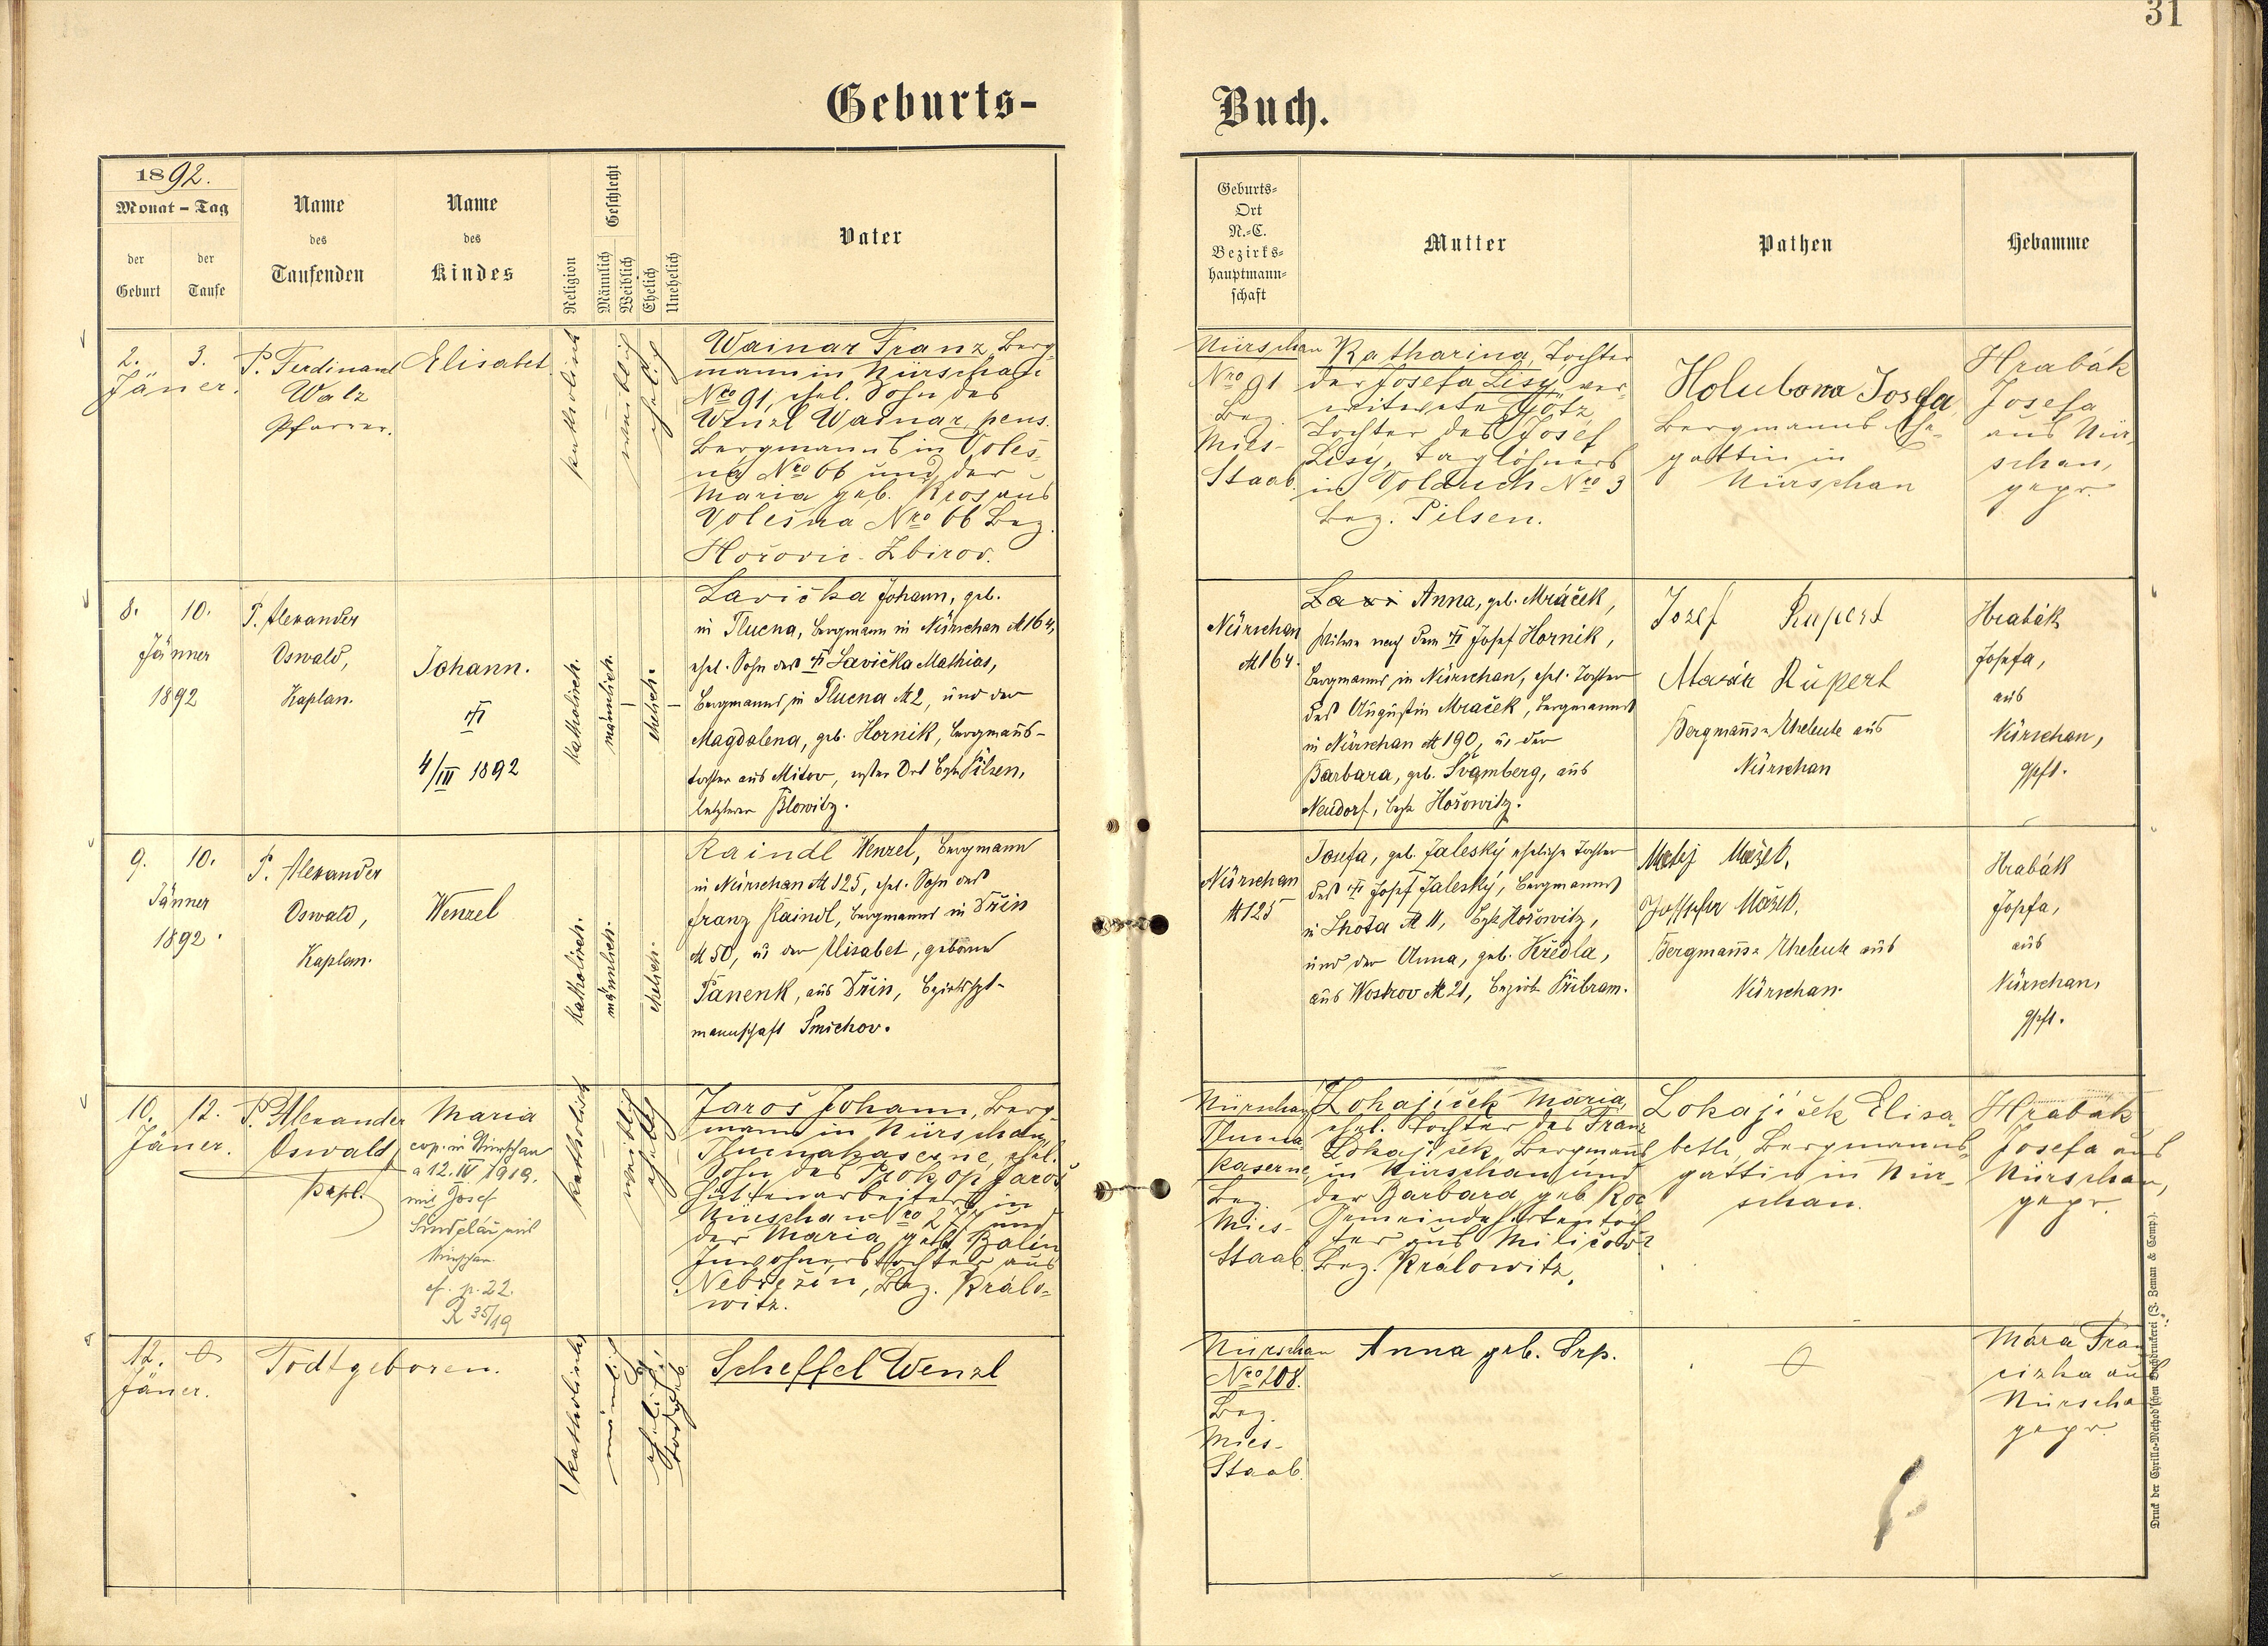 31
Geburts-
Buch.
1892.
Monat - Tag
der Geburt
der Taufe
Name des Taufenden
Name des Kindes
Religion
Geschlecht
Männlich
Weiblich
Ehelich
Unehelich
Vater
Geburts-
Ort
N.-C.
Bezirks-
hauptmann-
schaft
Mutter
Pathen
Hebamme
2. 3.
Jäner.
P. Ferdinand
Walz
Pfarrer.
Elisabet
katholisch
weiblich
ehelich
Wainar Franz, Berg-
mann in Nürschan
Nro 91, ehel. Sohn des
Wenzl Wainar pens.
Bergmanns in Voleš-
na Nro 66 und der
Maria geb. Kros aus
Volešna Nro 66 Bez.
Hořovic-Zbirov.
Nürschan
Nro 91
Bez.
Mies-
Staab.
Katharina, Tochter
der Josefa Lisy, ver-
witwete Götz,
Tochter des Josef
Lisy, Taglöhners
in Volduch Nro 3
Bez. Pilsen.
Holubova Josefa
Bergmanns Ehe-
gattin in
Nürschan
Hrabák
Josefa
aus Nür-
schan,
gepr.
8. 10.
Jänner
1892
P. Alexander
Oswald,
Kaplan.
Johann.
4/III 1892
katholisch.
männlich.
ehelich.
Lavička Johann, geb.
in Tlucna, Bergmann in Nürschan № 164,
ehel. Sohn des Lavička Mathias,
Bergmanns in Tlucna № 2, und der
Magdalena, geb. Hornik, Bergmanns-
tochter aus Mitov, erster Ort Bzk Pilsen,
letzterer Blowitz.
Nürschan
№ 164.
Lavi Anna, geb. Mráček,
Witwe nach dem Josef Hornik,
Bergmanns in Nürschan, ehel. Tochter
des Augustin Mraček, Bergmanns
in Nürschan № 190, u. der
Barbara, geb. Švamberg, aus
Neudorf, Bezk Hořowitz.
Jozef Rupert
Marie Rupert
Bergmanns-Eheleute aus
Nürschan
Hrabák
Josefa,
aus
Nürschan,
gpft.
9. 10.
Jänner
1892.
P. Alexander
Oswald,
Kaplan.
Wenzel
katholisch.
männlich.
ehelich.
Raindl Wenzel, Bergmann
in Nürschan № 125, ehel. Sohn des
Franz Raindl, Bergmanns in Dřin
№ 50, u. der Elisabet, geborne
Panenk, aus Dřin, Bezirkshpt-
mannschaft Smichov.
Nürschan
№ 125
Josefa, geb. Zaleský eheliche Tochter
des Josef Zaleský, Bergmanns
in Lhota № 11, Bzk Hořowitz,
und der Anna, geb. Kředla,
aus Woskov № 21, Bezirk Přibram.
Matěj Mašek,
Josefa Mašek,
Bergmanns-Eheleute aus
Nürschan.
Hrabák
Josefa,
aus
Nürschan,
gpft.
10. 12.
Jäner.
P. Alexander
Oswald
Kapl.
Maria
cop. in Nürschan
a 12. IV 1919.
mit Josef
aus
Nürschan
cf. p. 22.
R 35/19
katholisch
weiblich
ehelich
Jaroš Johann, Berg-
mann in Nürschan,
Tlucnakaserne, ehel.
Sohn des Prokop Jaroš
Hüttenarbeiters in
Nürschan Nro 277 und
der Maria geb. Balin
Inwohnerstochter aus
Nebřežin, Bez. Kralo-
witz.
Nürschan
Tlucna
Kaserne,
Bez.
Mies-
Staab.
Lokajiček Maria,
ehel. Tochter des Franz
Lokajiček, Bergmanns
in Nürschan und
der Barbara, geb. Koc
Gemeindehirtentoch
ter aus Miličow
Bez. Kralowitz.
Lokajiček Elisa-
beth, Bergmanns-
gattin in Nür-
schan.
Hrabák
Josefa aus
Nürschan,
gepr.
12.
Jäner.
Todtgeboren.
katholisch
männlich
ehelich
todtgeb.
Scheffel Wenzl
Nürschan
Nro 208.
Bez.
Mies-
Staab.
Anna geb. Srp.
Mára Fran
ciska aus
Nürscha
gepr.
Druck der Cyrillo-Method'schen Buchdruckerei (J. Zeman & Comp.).